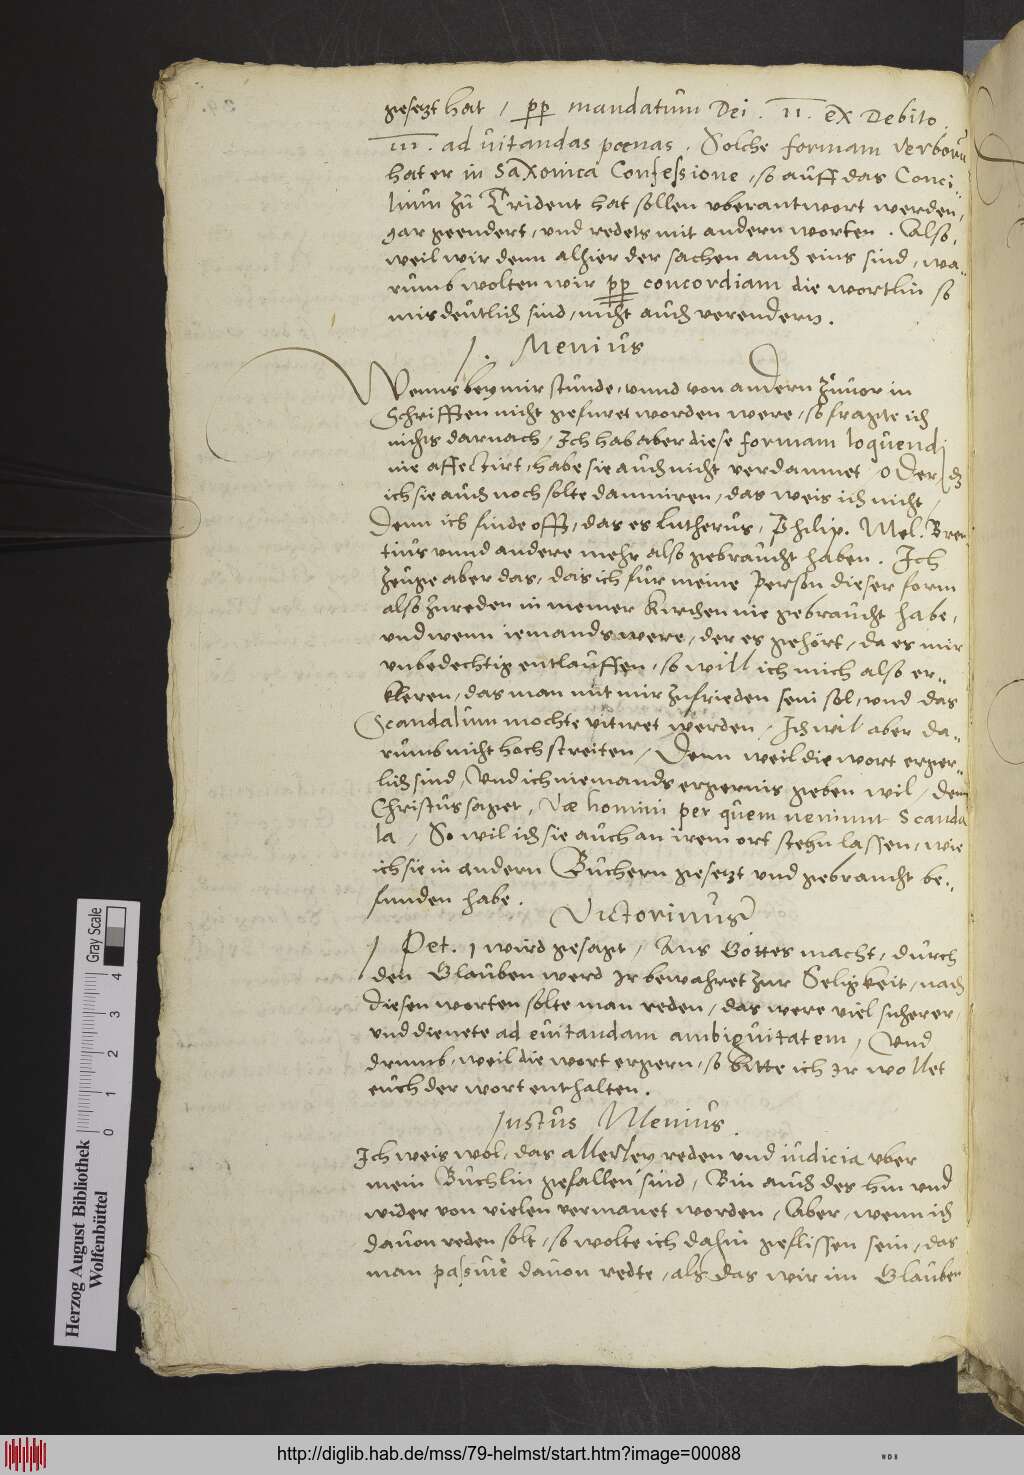 gesetzt hat / pp mandatum Dei . II . ex Debito
III . ad vitandas poenas . Solche formam verborum
hat er in Saxonica Confessione, so auff das Conci-
lium zu Trident hat sollen vberantwort werden,
gar geendert, vnd redets mit andern worten . Also,
weil wir denn alhier der sachen auch eins sind, wa-
rumb wolten wir pp concordiam die wortlin so
misdeutlich sind, nicht auch verendern .
J . Menius
Wenns bey mir stunde, vnnd von andern zuuor in
Schrifften nicht gefuret worden were, so fragte ich
nichts darnach, Ich hab aber diese formam loquendi
nie affectirt, habe sie auch nicht verdammet / Oder dz
ich sie auch noch solte damniren, das weis ich nicht,
Denn ich finde offt, das es Lutherus, Philip. Mel. Bren
tius vnnd andere mehr also gebraucht haben . Ich
zeuge aber das, das ich fur meine Person dieser form
also zureden in meiner Kirchen nie gebraucht habe,
vnd wenn iemands were, der es gehört, da es mir
vnbedechtig entlauffen, so will ich mich also er-
kleren, das man mit mir zufrieden sein sol, vnd das
Scandalum mochte vitiret werden, Ich wil aber da-
rumb nicht hoch streiten, Denn weil die wort erger-
lich sind, Vnd ich niemands ergernis geben wil, denn
Christus saget, Væ homini per quem veniunt Scanda
la, So wil ich sie auch an irem ort stehn lassen, wie
ich sie in andern Buchern gesetzt vnd gebraucht be-
funden habe .
Victorinus
1 Pet. 1 wird gesagt, Aus Gottes macht, durch
den Glauben werd Ir bewahret zur Seligkeit, nach
diesen worten solte man reden, das were viel sicherer,
vnd dienete ad euitandam ambiguitatem, Vnd
drumb, weil die wort ergern, so bitte ich Ir wollet
euch der wort enthalten .
Justus Menius .
Ich weis wol, das allerley reden vnd iudicia vber
mein Buchlin gefallen sind, Bin auch des hin vnd
wider von vielen vermanet worden, Aber, wenn ich
dauon reden solt, so wolte ich dahin geflissen sein, das
man passiue dauon redte, als das wir im Glauben
Herzog August Bibliothek
Wolfenbüttel
Gray Scale
0 1 2 3 4
http://diglib.hab.de/mss/79-helmst/start.htm?image=00088
WDB